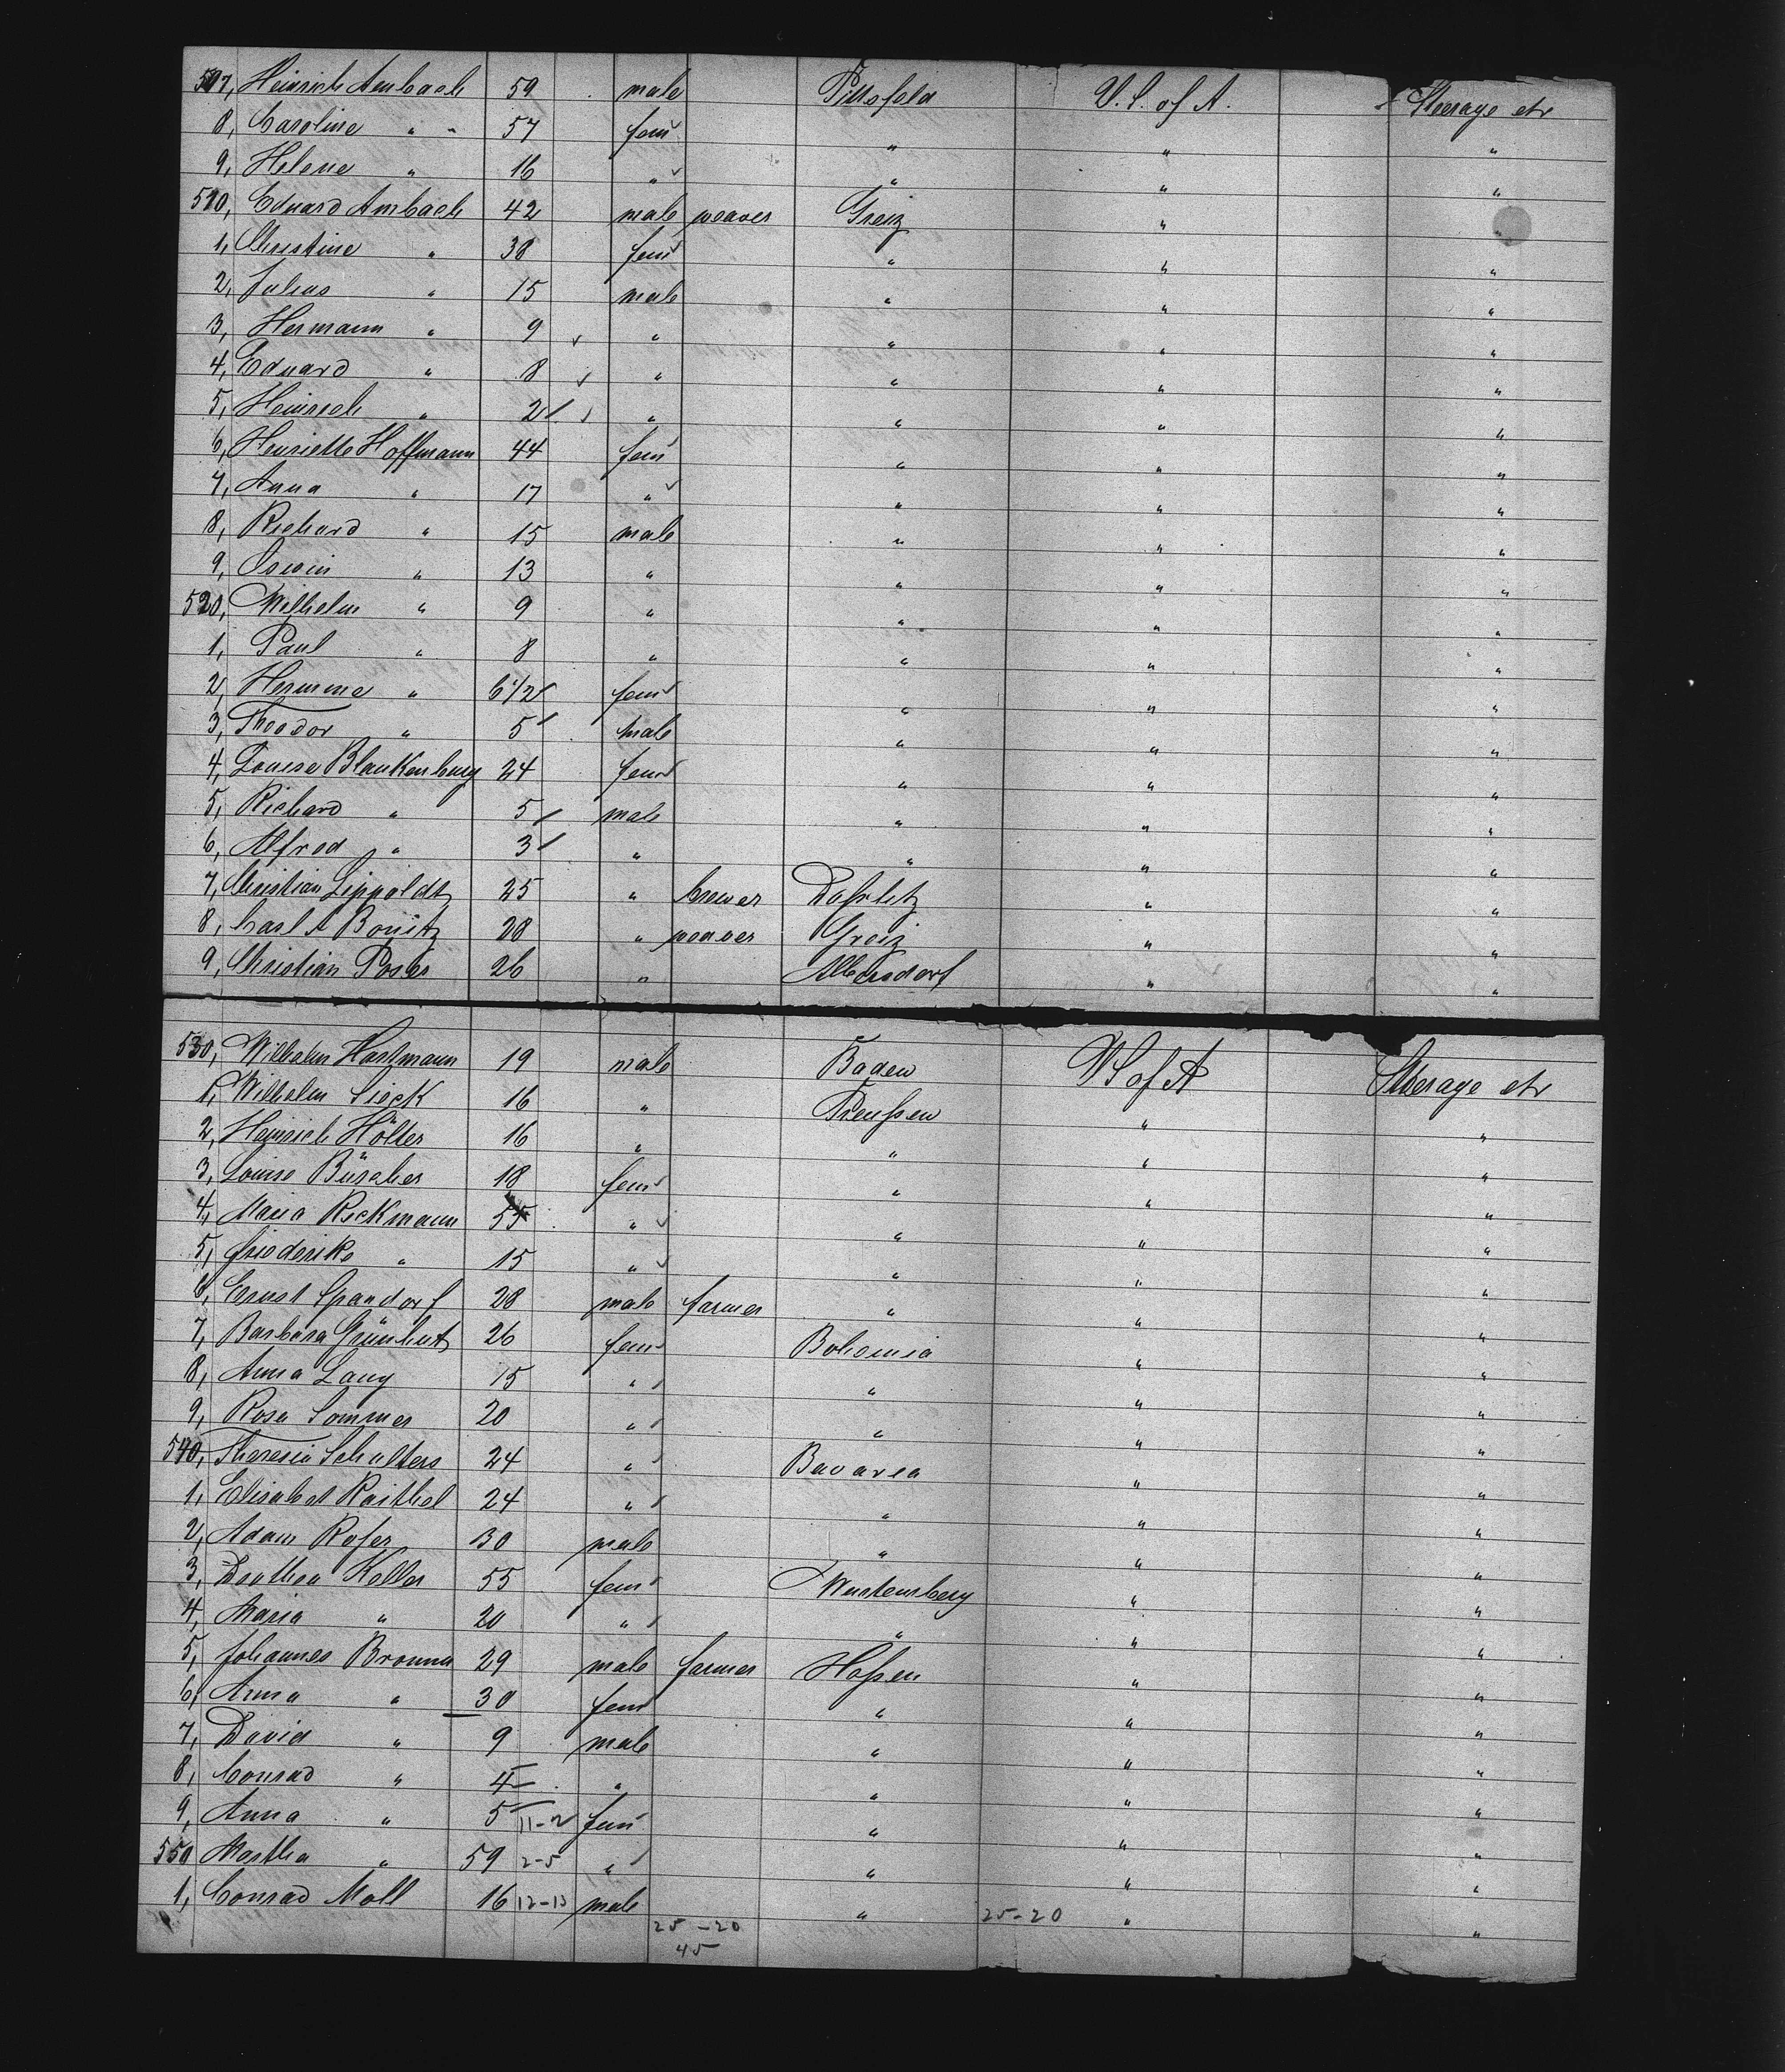 507, Heinrich Ambach 59 male Pittsfeld U.S. of A. Steerage etr
8, Caroline " " 57 fem " " "
9, Helene " 16 " " " "
510, Eduard Ambach 42 male weaver Greiz " "
1, Christine " 38 fem " " "
2, Julius " 15 male " " "
3, Hermann " 9 " " " "
4, Eduard " 8 " " " "
5, Heinrich " 2 " " " "
6, Henriette Hoffmann 44 fem " " "
7, Anna " 17 " " " "
8, Richard " 15 male " " "
9, Oswin " 13 " " " "
520, Wilhelm " 9 " " " "
1, Paul " 8 " " " "
2, Hermine " 6 1/2 fem " " "
3, Theodor " 5 male " " "
4, Louise Blankenburg 24 fem " " "
5, Richard " 5 male " " "
6, Alfred " 3 " " " "
7, Christian Lippoldt 25 " brewer " "
8, Carl A Bonitz 28 " weaver Greiz " "
9, Christian Poser 26 " Albersdorf " "
530, Wilhelm Hartmann 19 male Baden US of A Steerage etr
1, Wilhelm Sieck 16 " Preußen " "
2, Heinrich Hölter 16 " " " "
3, Louise Büscher 18 fem " " "
4, Maria Rickmann 55 " " " "
5, Friederike " 15 " " " "
6, Ernst Spandorf 28 male farmer " " "
7, Barbara Grünhut 26 fem Bohemia " "
8, Anna Lang 15 " " " "
9, Rosa Sommer 20 " " " "
540, Theresia Schulters 24 " Bavaria " "
1, Elisabet Raithel 24 " " " "
2, Adam Rofer 30 male " " "
3, Dorthea Keller 55 fem Wurtemberg " "
4, Maria " 20 " " " "
5, Johannes Bromm 29 male farmer Hessen " "
6, Anna " 30 fem " " "
7, David " 9 male " " "
8, Conrad " 4 " " " "
9, Anna " 5 11-2 fem " " "
550 Martha " 59 2-5 " " " "
1, Conrad Moll 16 12-13 male " " "
25-20 25-20
45